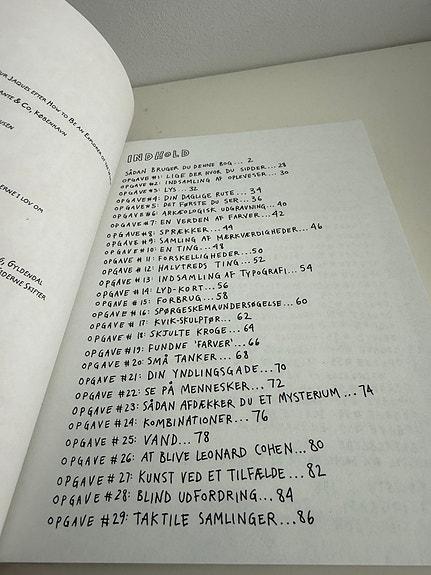 UR JAQUES EFTER HOW TO BE AN EXPLORER OF
& CO, KØBENHAVN
ERNE I LOV OM
GYLDENDAL
SIDERNE SKIFTER
INDHOLD
SÅDAN BRUGER DU DENNE BOG... 2
OPGAVE #1: LIGE DER HVOR DU SIDDER... 28
OPGAVE #2: INDSAMLING AF OPLEVELSER... 30
OPGAVE #3: LYS... 32
OPGAVE #4: DIN DAGLIGE RUTE... 34
OPGAVE #5: DET FØRSTE DU SER... 36
OPGAVE #6: ARKÆOLOGISK UDGRAVNING... 40
OPGAVE #7: EN VERDEN AF FARVER... 42
OPGAVE #8: SPRÆKKER... 44
OPGAVE #9: SAMLING AF MÆRKVÆRDIGHEDER... 46
OPGAVE #10: EN TING... 48
OPGAVE #11: FORSKELLIGHEDER... 50
OPGAVE #12: HALVTREDS TING... 52
OPGAVE #13: INDSAMLING AF TYPOGRAFI... 54
OPGAVE #14: LYD-KORT... 56
OPGAVE #15: FORBRUG... 58
OPGAVE #16: SPØRGESKEMAUNDERSØGELSE... 60
OPGAVE #17: KVIK-SKULPTØR... 62
OPGAVE #18: SKJULTE KROGE... 64
OPGAVE #19: FUNDNE 'FARVER'... 66
OPGAVE #20: SMÅ TANKER... 68
OPGAVE #21: DIN YNDLINGSGADE... 70
OPGAVE #22: SE PÅ MENNESKER... 72
OPGAVE #23: SÅDAN AFDÆKKER DU ET MYSTERIUM... 74
OPGAVE #24: KOMBINATIONER... 76
OPGAVE #25: VAND... 78
OPGAVE #26: AT BLIVE LEONARD COHEN... 80
OPGAVE #27: KUNST VED ET TILFÆLDE... 82
OPGAVE #28: BLIND UDFORDRING... 84
OPGAVE #29: TAKTILE SAMLINGER... 86